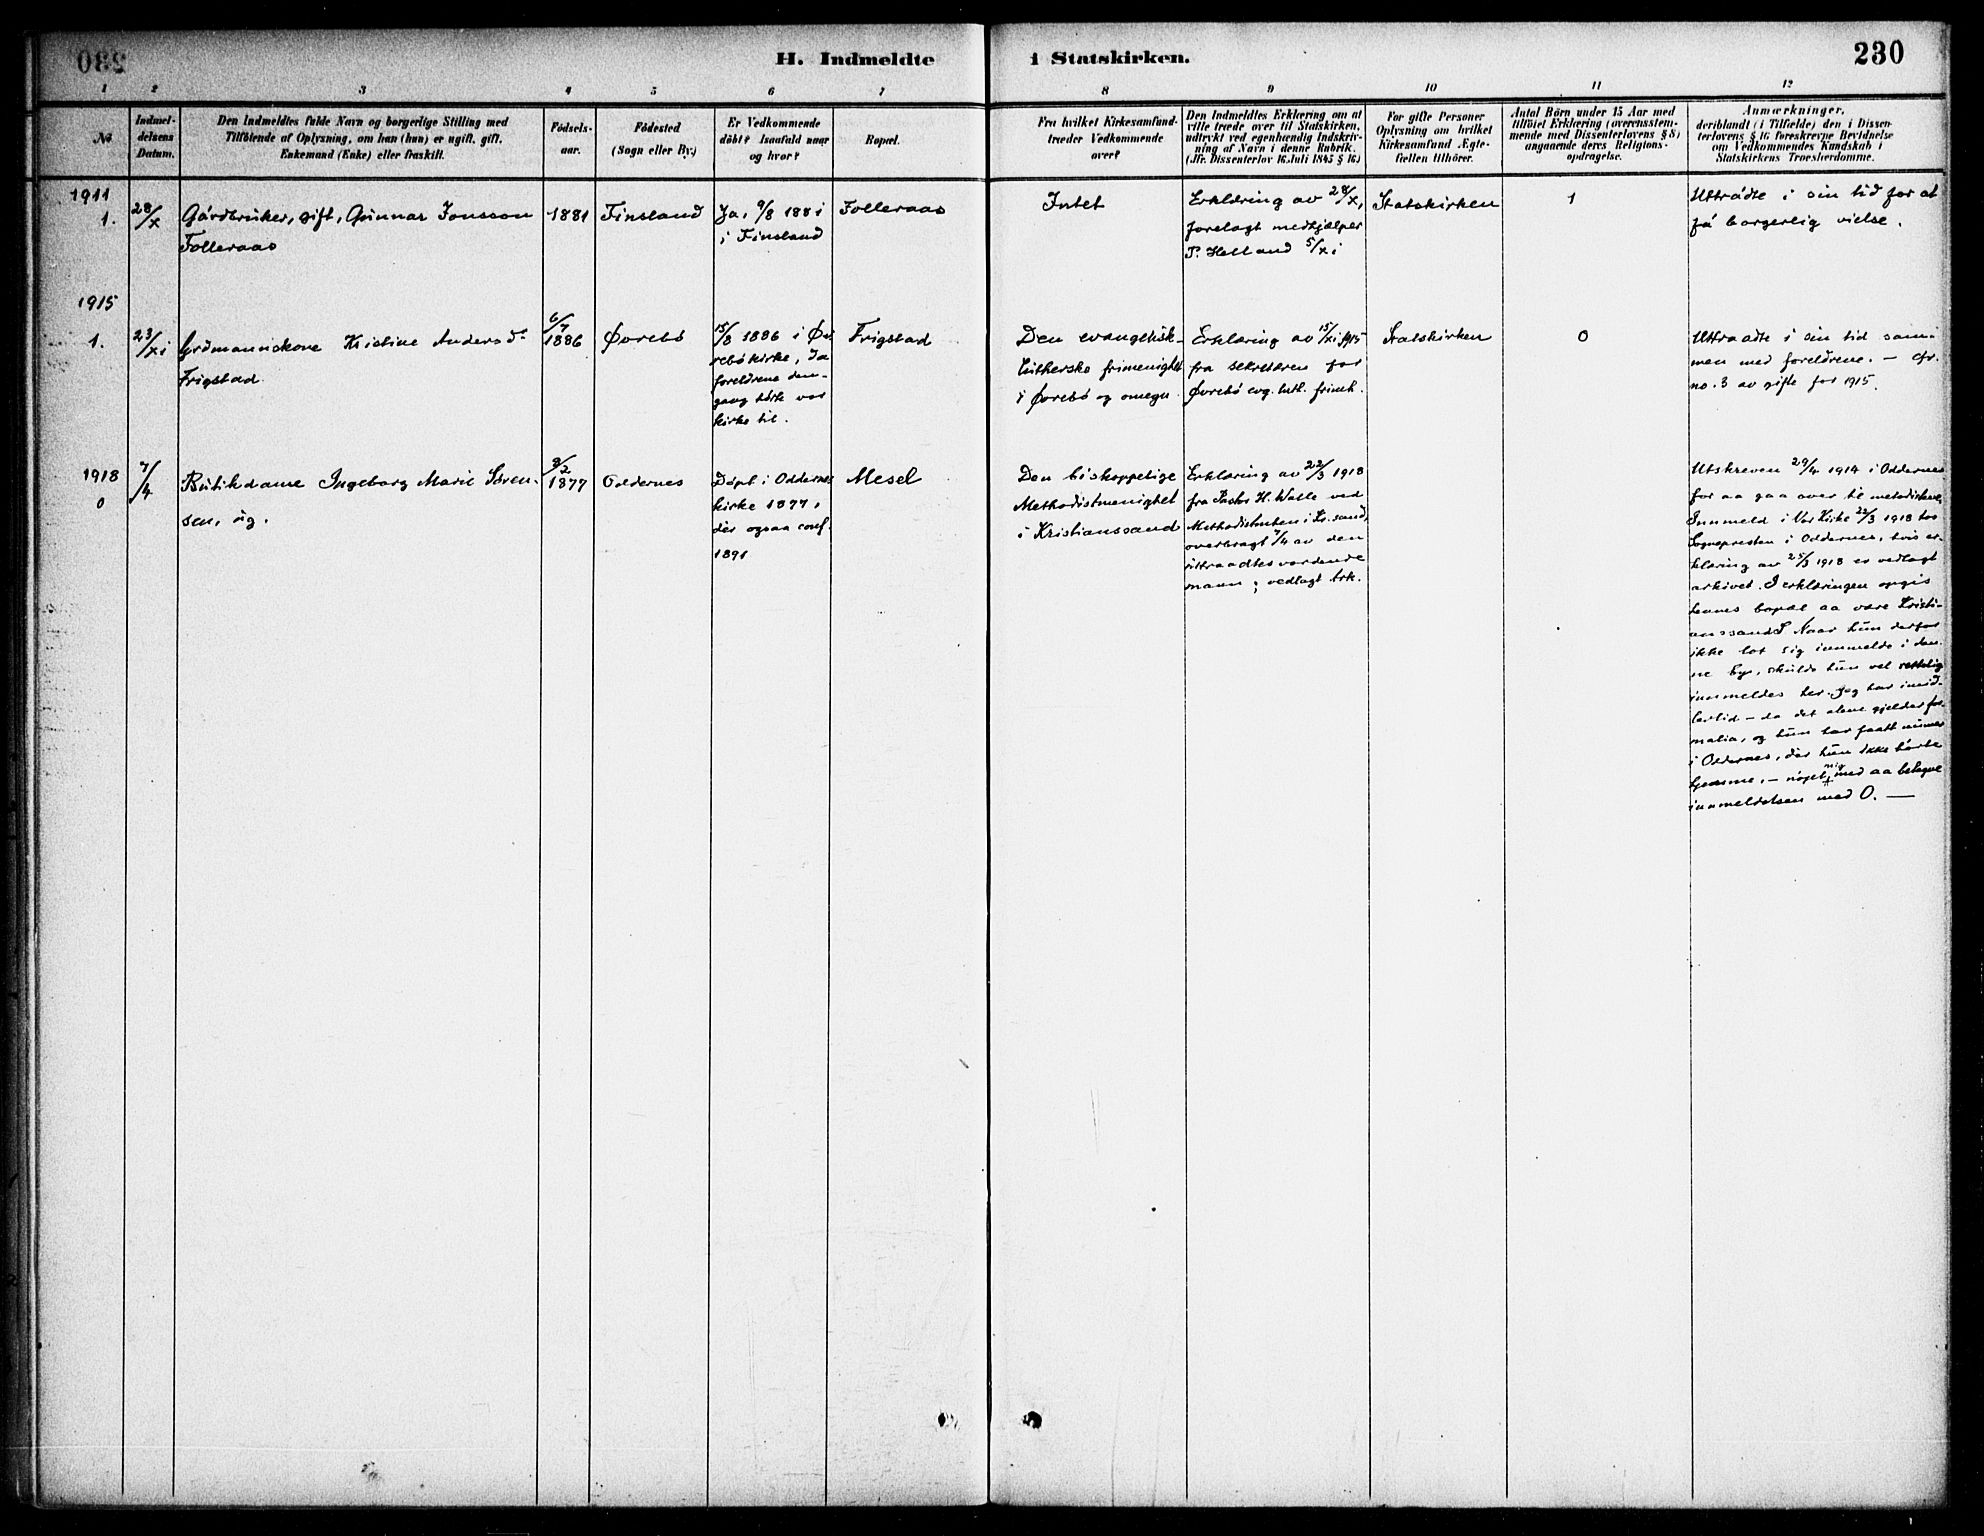 230
H. Indmeldte i Statskirken.
230
1 2 3 4 5 6 7 8 9 10 11 12
No
Indmel-
delsens
Datum.
Den Indmeldtes fulde Navn og borgerlige Stilling med
Tilföiende af Oplysning, om han (hun) er ugift, gift,
Enkemand (Enke) eller fraskilt.
Födsels-
aar.
Födested
(Sogn eller By.)
Er Vedkommende
döbt? Isaafald naar
og hvor?
Bopæl.
Fra hvilket Kirkesamfund
træder Vedkommende
over?
Den Indmeldtes Erklæring om at
ville træde over til Statskirken,
udtrykt ved egenhændig Indskriv-
ning af Navn i denne Rubrik.
(Jfr. Dissenterlov 16 Juli 1845 § 16.)
For gifte Personer
Oplysning om hvilket
Kirkesamfund Ægte-
fællen tilhörer.
Antal Börn under 15 Aar med
tilföiet Erklæring (overensstem-
mende med Dissenterlovens § 8)
angaaende deres Religions-
opdragelse.
Anmærkninger,
deriblandt (i Tilfælde) den i Dissen-
terlovens § 16 foreskrevne Bevidnelse
om Vedkommendes Kundskab i
Statskirkens Troesherdomme.
1911
1.
28/X
Gårdbruker, gift, Gunnar Jonsson
Folleraas
1881
Finsland
Ja, 9/8 1881
i Finsland
Folleraas
Intet
Erklæring av 28/X,
forelagt medhjælper
P. Helland 5/XI
Statskirken
1
Uttrådte i sin tid for at
få borgerlig vielse.
1915
1.
23/XI
Grdmannskone Kristine Andersd.
Frigstad
6/7
1886
Øvrebö
15/8 1886 i Øv-
rebökirke, da
foreldrene den-
gang hörte vor
kirke til.
Frigstad
Den evangelisk-
lutherske frimenighet
i Øvrebö og omegn.
Erklæring av 15/XI 1915
fra sekretæren for
Øvrebö evg. luth. frimh.
Statskirken
0
Uttraadte i sin tid sam-
men med foreldrene. - Cfr.
no. 3 av gifte for 1915.
1918
0
7/4
Butikdame Ingeborg Marie Sören-
sen, ug.
9/2
1877
Oddernes
Döpt i Oddernes
kirke 1877,
der ogsaa conf.
1891
Mesel
Den biskoppelige
Methodistmenighet
i Kristianssand
Erklæring av 22/3 1918
fra Pastor H. Walle ved
Methodistmten i Kr.sand,
overbragt 7/4 av den
uttraadtes vordende
mann; vedlagt Ark.
Utskreven 29/4 1914 i Oddernes
for aa gaa over til metodistene.
Innmeld i Vor Kirke 22/3 1918 hos
Sognepresten i Oddernes, hvis er-
klæring av 25/3 1918 er vedlagt
arkivet. I erklæringen opgis
hennes bopæl aa være Kristi-
anssand S. Naar hun derfor
ikke lot sig innmelde i den-
ne by, skulde hun vel rettelig
innmeldes her. Jeg har imid-
lertid - da det alene gjelder for-
malia, og hun har faatt nummer
i Oddernes, der hun ikke hörte
hjemme, - nöjet mig med aa betegne
innmeldelsen med 0. —